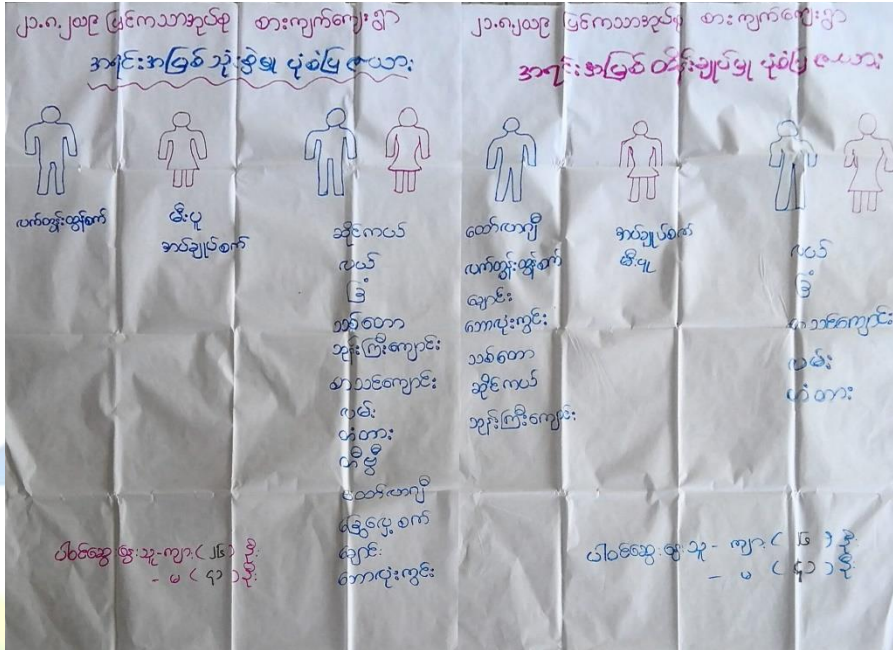 ၂၁.၈.၂၀၁၉ မြင်ကသာအုပ်စု စားကျက်ကျေးရွာ
အရင်းအမြစ် သုံးစွဲမှု ပုံစံပြ ဇယား
လက်တွန်းထွန်စက်
မီးပူ
အပ်ချုပ်စက်
ဆိုင်ကယ်
လယ်
ခြံ
သစ်တော
ဘုန်းကြီးကျောင်း
စာသင်ကျောင်း
လမ်း
တံတား
တီဗွီ
ထော်လာဂျီ
ခြွေလှေ့စက်
ချောင်း
ဘောလုံးကွင်း
ပါဝင်ဆွေးနွေးသူ - ကျား ( ၂၆ ) ဦး
- မ ( ၄၁ ) ဦး
၂၁.၈.၂၀၁၉ မြင်ကသာအုပ်စု စားကျက်ကျေးရွာ
အရင်းအမြစ် ထိန်းချုပ်မှု ပုံစံပြ ဇယား
ထော်လာဂျီ
လက်တွန်းထွန်စက်
ချောင်း
ဘောလုံးကွင်း
သစ်တော
ဆိုင်ကယ်
ဘုန်းကြီးကျောင်း
အပ်ချုပ်စက်
မီးပူ
လယ်
ခြံ
စာသင်ကျောင်း
လမ်း
တံတား
ပါဝင်ဆွေးနွေးသူ - ကျား ( ၂၆ ) ဦး
- မ ( ၄၁ ) ဦး